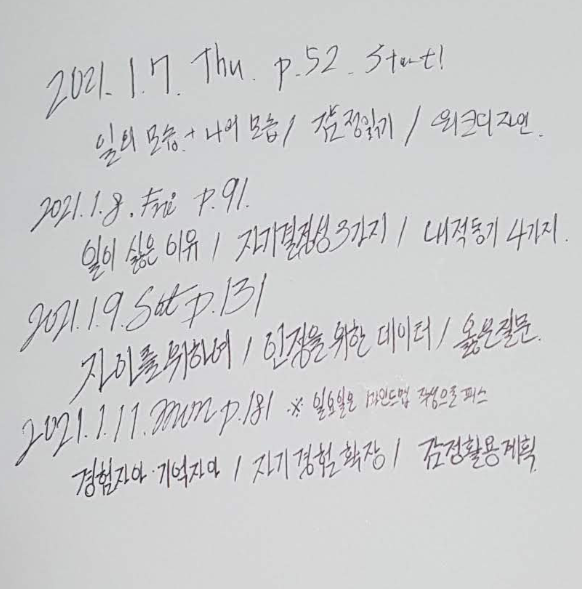 2021. 1. 7. Thu. p.52. Start!
일의 모습 + 나의 모습 / 감정읽기 / 워크디자인.
2021. 1. 8. Fri p.91.
일이 싫은 이유 / 자기결정성 3가지 / 내적동기 4가지.
2021. 1. 9. Sat p.131
자아를 위하여 / 인정을 위한 데이터 / 옳은질문.
2021. 1. 11. mon p.181 ※ 일요일은 마인드맵 작성으로 패스
경험자아·기억자아 / 자기경험 확장 / 감정활용계획